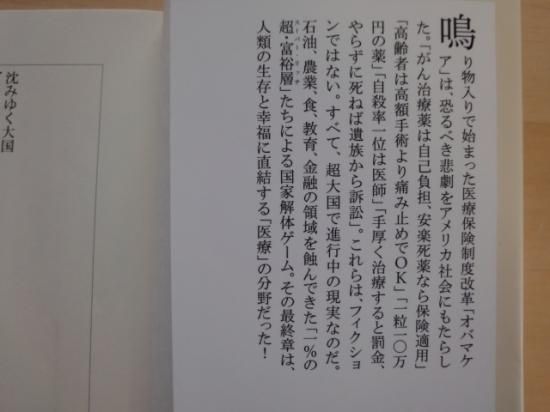 鳴り物入りで始まった医療保険制度改革「オバマケ
ア」は、恐るべき悲劇をアメリカ社会にもたらし
た。「がん治療薬は自己負担、安楽死薬なら保険適用」
「高齢者は高額手術より痛み止めでOK」「一粒一〇万
円の薬」「自殺率一位は医師」「手厚く治療すると罰金、
やらずに死ねば遺族から訴訟」。これらは、フィクショ
ンではない。すべて、超大国で進行中の現実なのだ。
石油、農業、食、教育、金融の領域を蝕んできた「一%の
スーパー・リッチ
超・富裕層」たちによる国家解体ゲーム。その最終章は、
人類の生存と幸福に直結する「医療」の分野だった！
沈みゆく大国